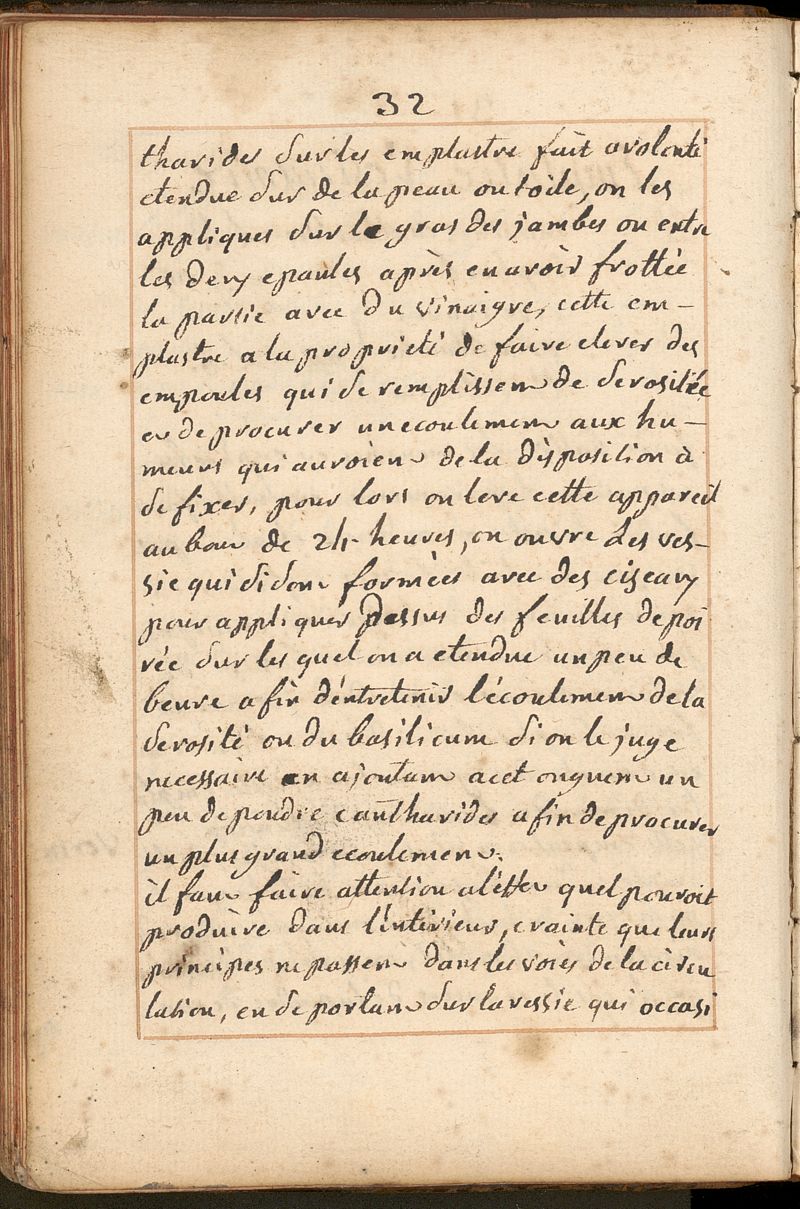 32
tharides sur les emplastre fait avolonté
etendue sur de la peau ou toile, on les
appliques sur le gras des jambes ou entre
les deux epaules après en avoir frottée
la partie avec du vinaigre, cette em-
plastre a la proprieté de faire elever des
empoules qui se remplissent de serositée
et de procurer un ecoulement aux hu-
meurs qui auroient de la disposition à
se fixer, pour lors on leve cette appareil
au bout de 24 heures, on ouvre Les ves-
sie qui si sont formées avec des ciseaux
pour appliquer dessus des feuilles de poi
rée sur les quel on a etendue un peu de
beure afin d'éntretenir l'écoulement de la
serosité ou du basilicum si on le juge
necessaire en ajoutant a cet onguent un
peu de poudre cantharides afin de procurer
un plus grand ecoulement.
il faut faire attention a l'éffet quel pouroit
produire dans l'intérieur, crainte que leurs
principes ne passent dans les voies de la circu
lation, en se portant sur la vessie qui occasi